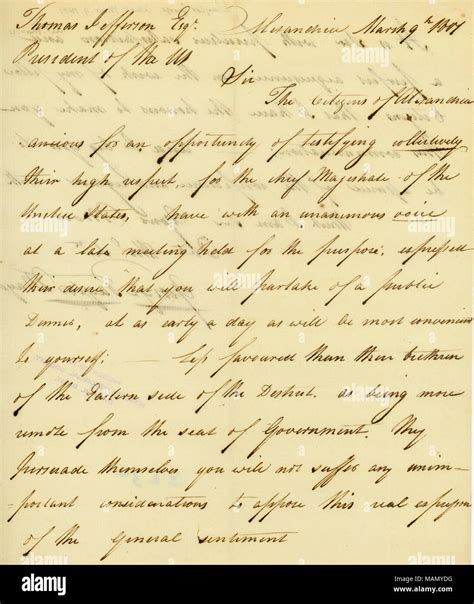 Thomas Jefferson Esqr. Alexandria March 9th 1801
President of the US
Sir
The Citizens of Alexandria
anxious for an opportunity of testifying collectively
their high respect, for the chief Magistrate of the
United States, have with an unanimous voice
at a late meeting held for the purpose, expressed
their desire, that you will partake of a public
Dinner, at as early a day as will be most convenient
to yourself: — Less favoured than their brethren
of the Eastern side of the District. as being more
remote from the seat of Government. They
persuade themselves you will not suffer any unim-
-portant considerations to oppose this real expression
of the General sentiment
alamy
Image ID: MAMYDG
www.alamy.com